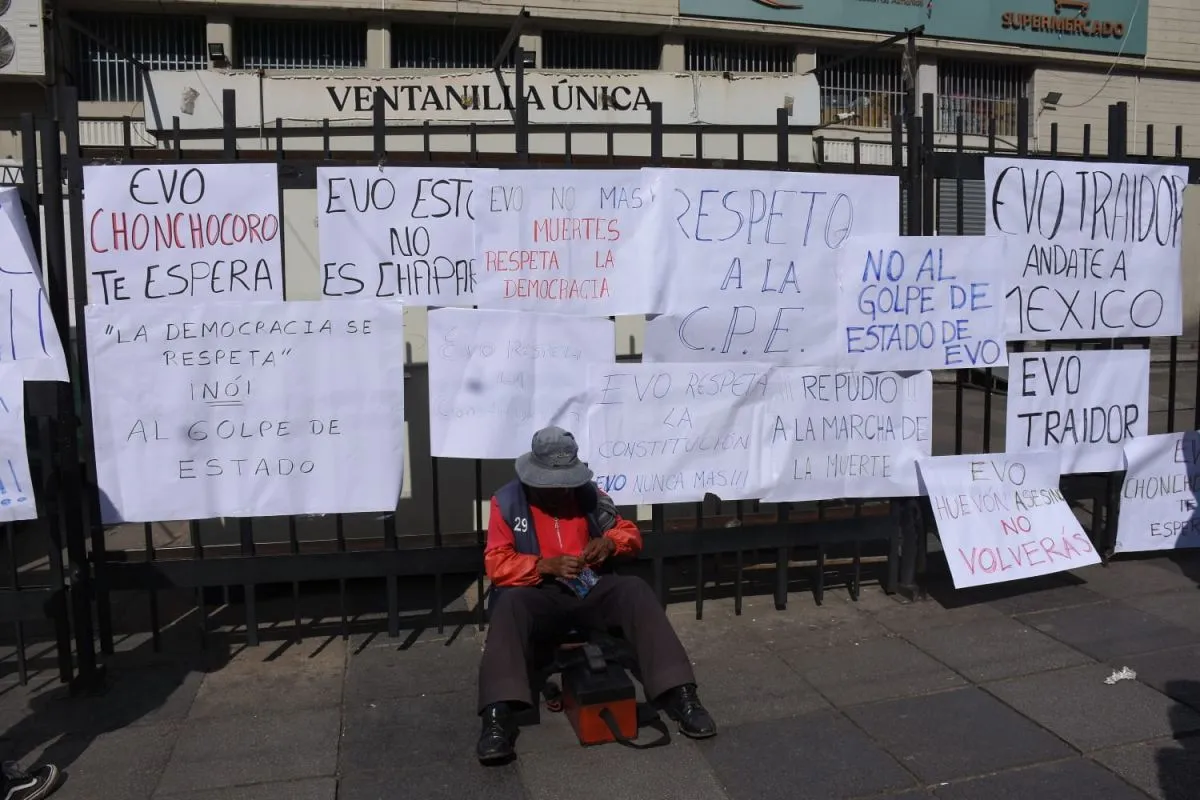 SUPERMERCADO
VENTANILLA ÚNICA
EVO
CHONCHOCORO
TE ESPERA
EVO ESTO
NO
ES CHAPAR
EVO NO MAS
MUERTES
RESPETA LA
DEMOCRACIA
RESPETO
A LA
C.P.E.
NO AL
GOLPE DE
ESTADO DE
EVO
EVO TRAIDOR
ANDATE A
MEXICO
"LA DEMOCRACIA SE
RESPETA"
¡NÓ!
AL GOLPE DE
ESTADO
EVO RESPETA
EVO RESPETA
LA
CONSTITUCIÓN
EVO NUNCA MAS!!!
¡¡¡ REPUDIO !!!
A LA MARCHA DE
LA MUERTE
EVO
TRAIDOR
EVO
HUEVÓN ASESINO
NO
VOLVERÁS
EV
CHONCH
TE
ESPE
29